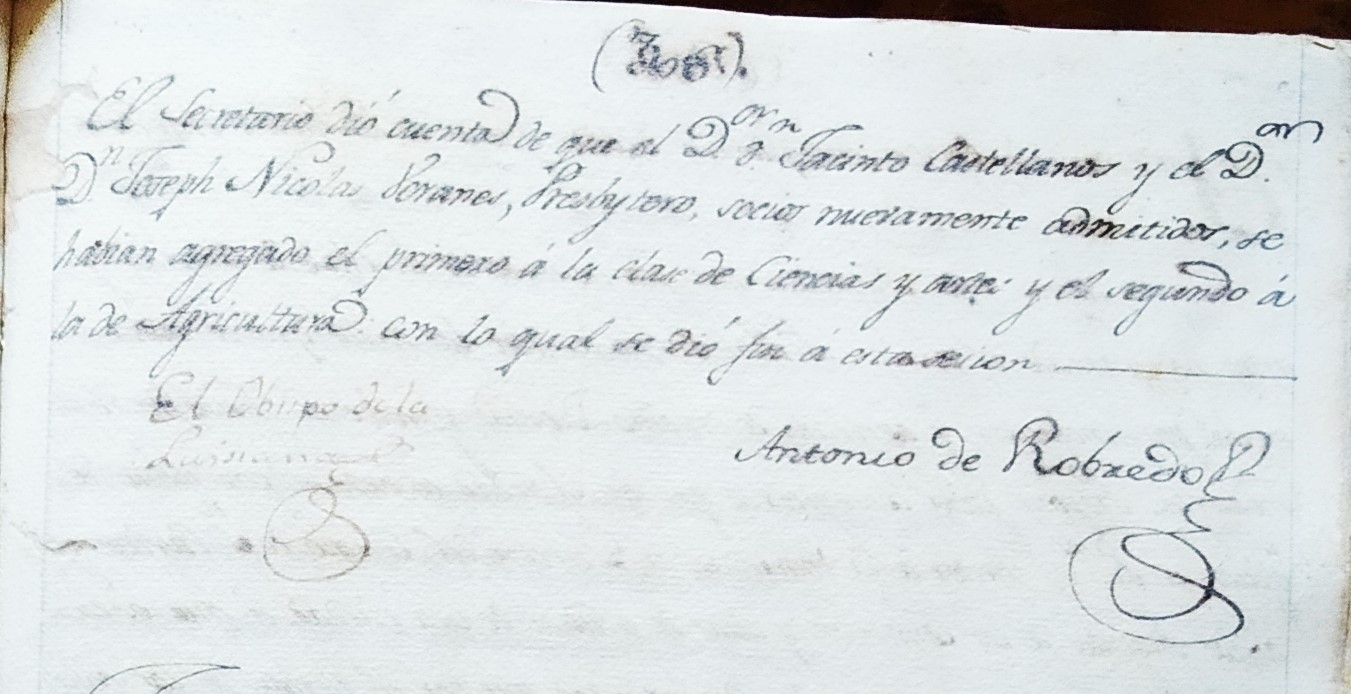 El Secretario dió cuenta de que el D.or D.n Jacinto Castellanos y el D.or
D.n Joseph Nicolas Peranes, Presbytero, socios nuevamente admitidos, se
habian agregado el primero á la clase de Ciencias y artes y el segundo á
la de Agricultura. con lo qual se dió fin á esta sesion
El Obispo de la
Luisiana
Antonio de Robredo